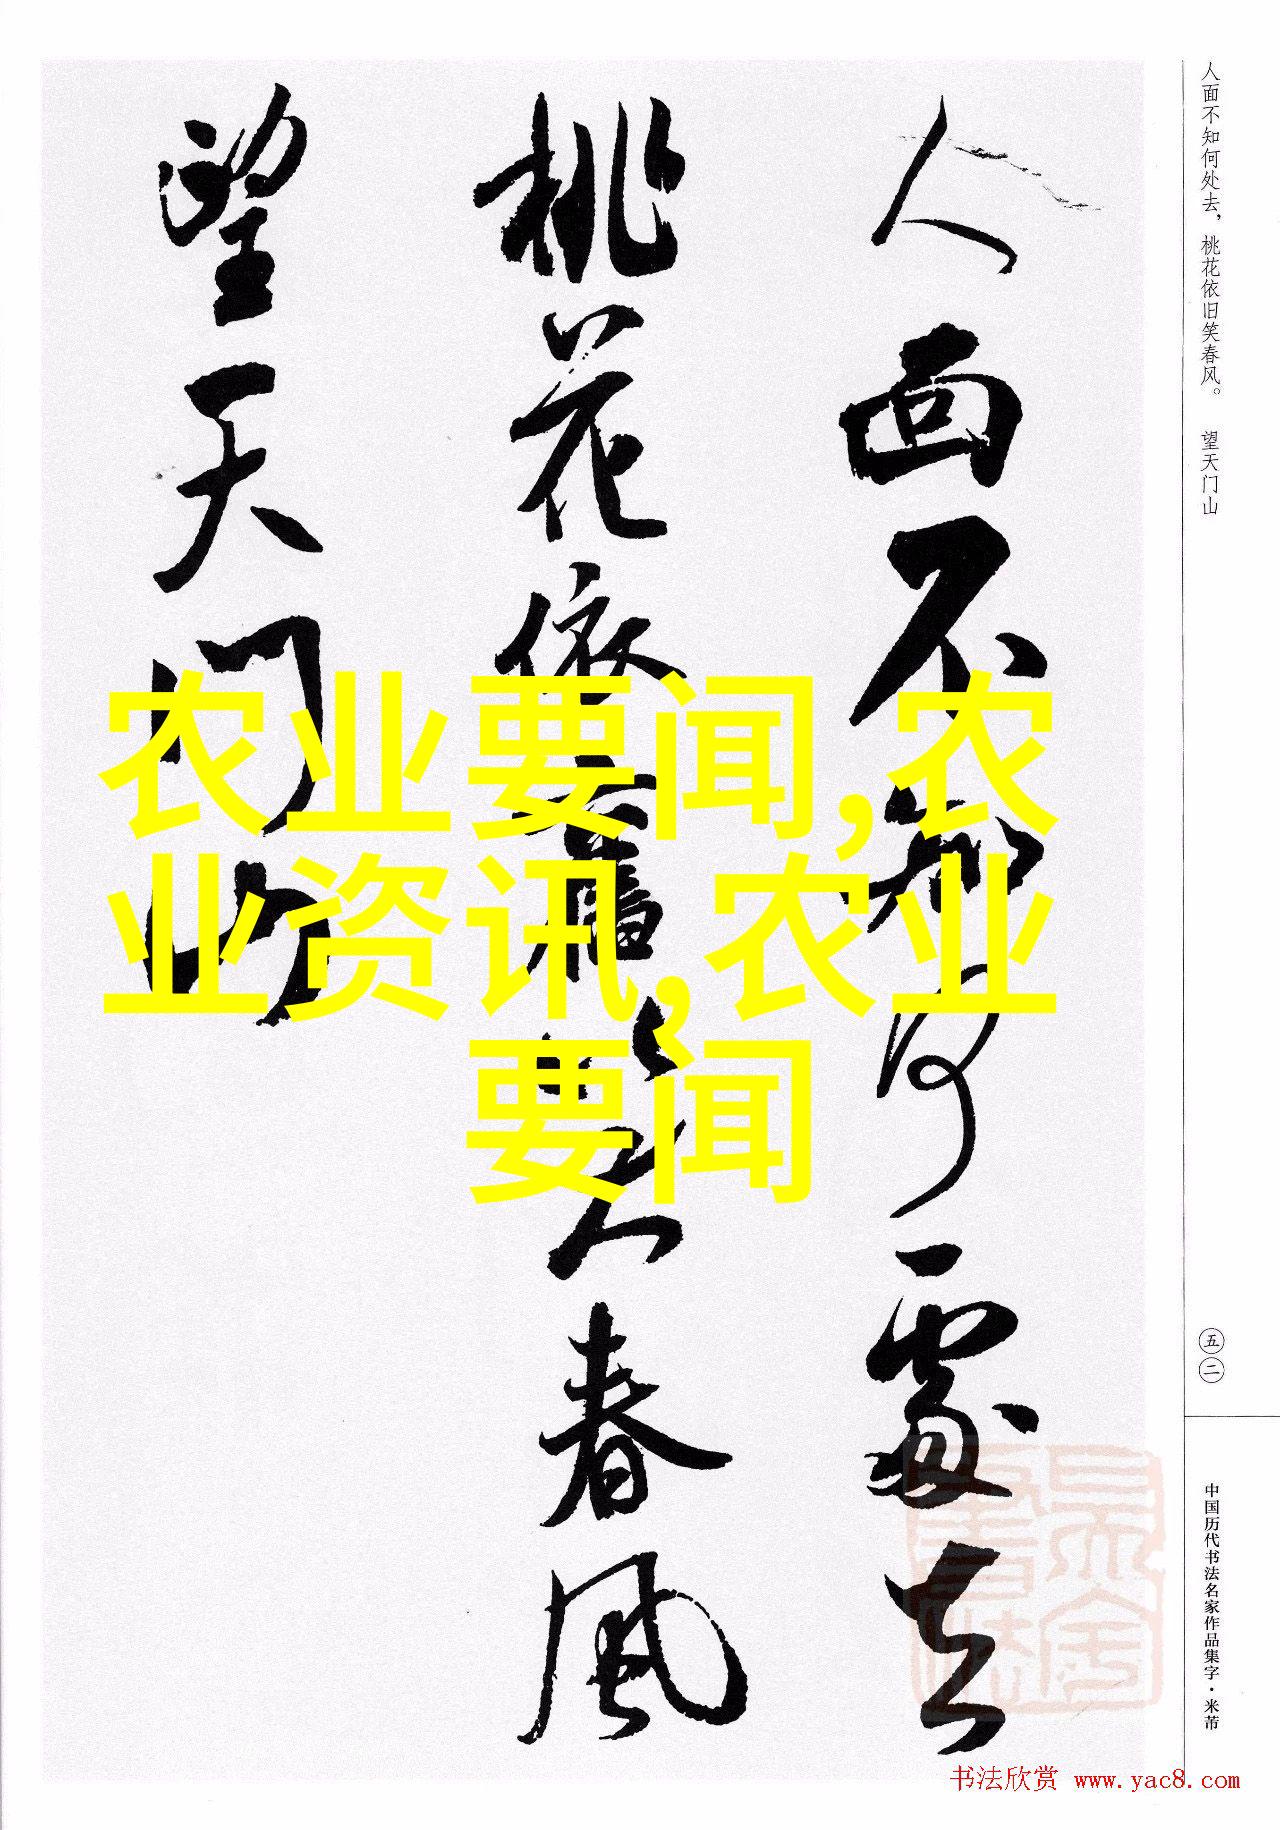 人面不知何處去
桃花依舊笑春風
望天门山
农业要闻,农
业资讯,农业
要闻
人面不知何处去，桃花依旧笑春风。 望天门山
五二
中国历代书法名家作品集字·米芾
书法欣赏 www.yac8.com